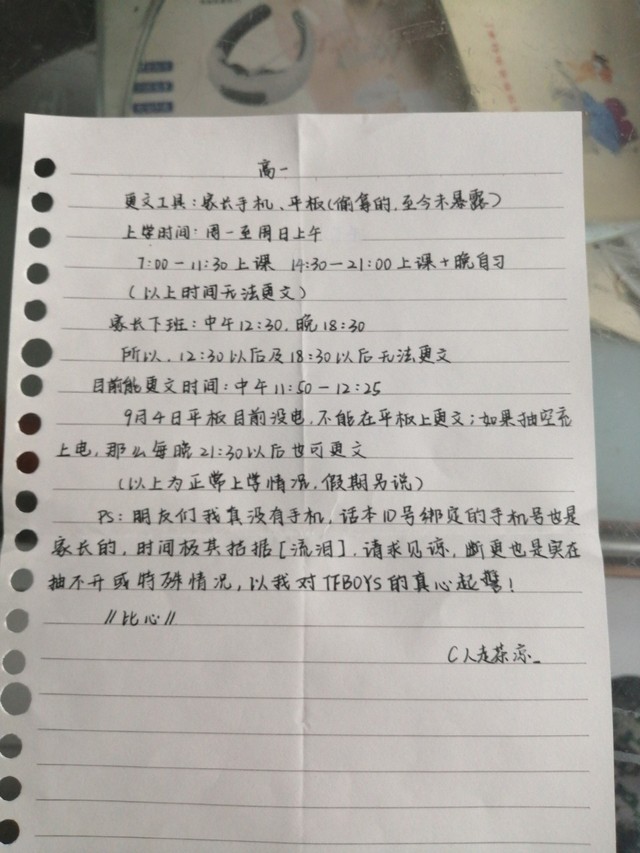 高一
更文工具：家长手机、平板（偷拿的，至今未暴露）
上学时间：周一至周日上午
7:00－11:30上课 14:30－21:00上课＋晚自习
（以上时间无法更文）
家长下班：中午12:30，晚18:30
所以，12:30以后及18:30以后无法更文
目前能更文时间：中午11:50－12:25
9月4日平板目前没电，不能在平板上更文；如果抽空充
上电，那么每晚21:30以后也可更文
（以上为正常上学情况，假期另说）
PS：朋友们我真没有手机，话本ID号绑定的手机号也是
家长的，时间极其拮据［流泪］，请求见谅，断更也是实在
抽不开或特殊情况，以我对TFBOYS的真心起誓！
//比心//
C人走茶凉_